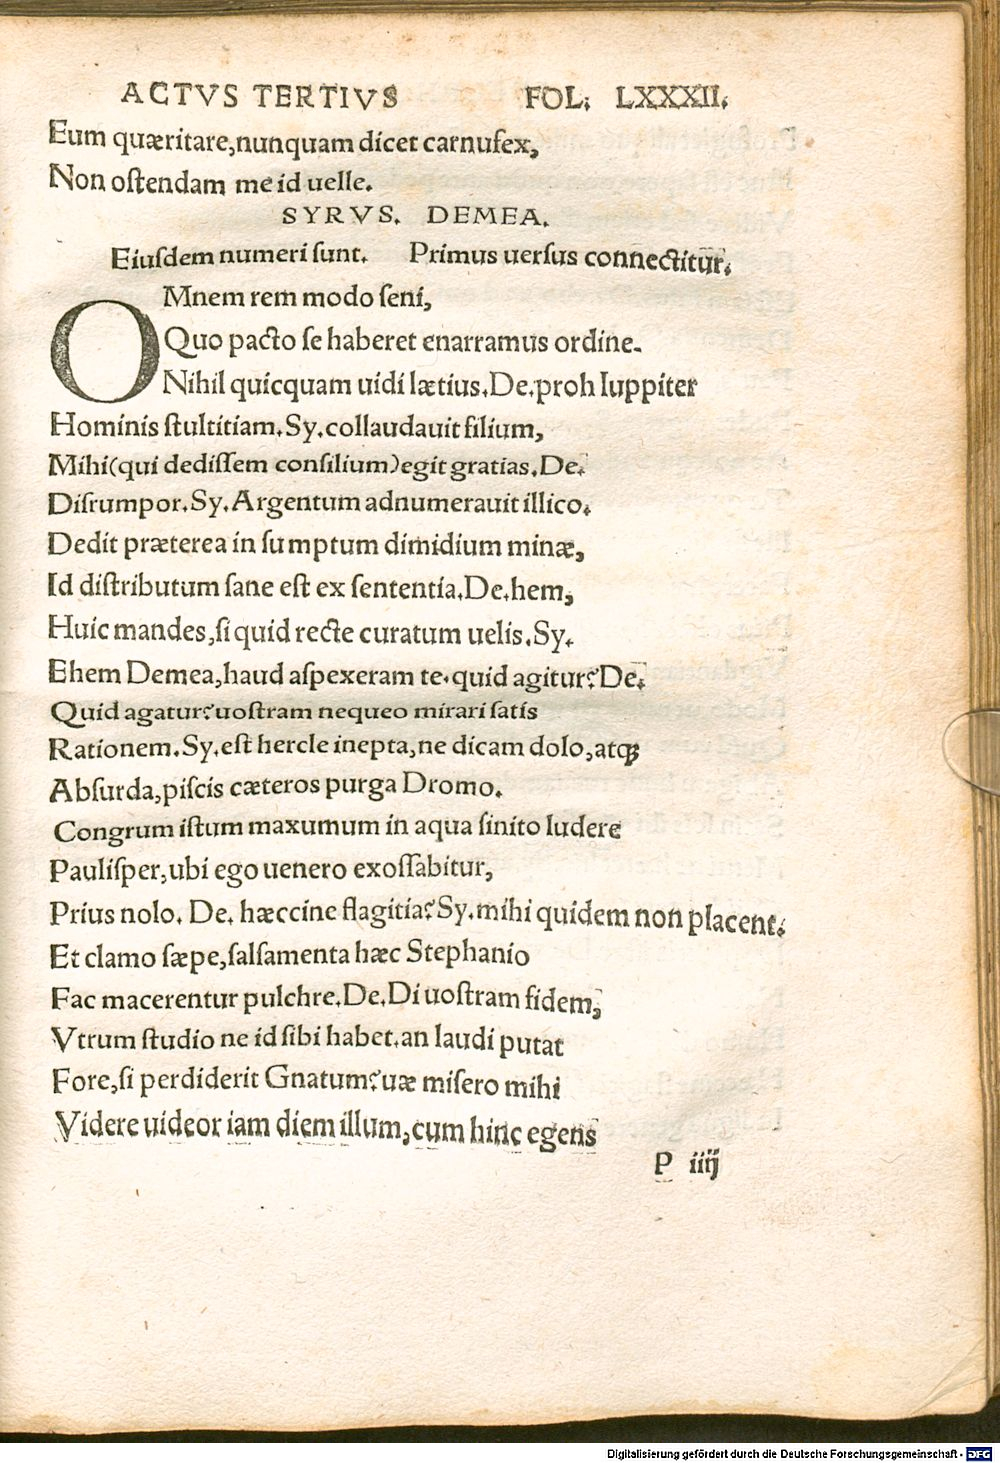 ACTVS TERTIVS FOL. LXXXII.
Eum quæritare,nunquam dicet carnufex,
Non oſtendam me id uelle.
SYRVS. DEMEA.
Eiusdem numeri ſunt. Primus uerſus connectitur.
OMnem rem modo ſeni,
Quo pacto ſe haberet enarramus ordine.
Nihil quicquam uidi lætius.De.proh Iuppiter
Hominis ſtultitiam.Sy.collaudauit filium,
Mihi(qui dediſſem conſilium)egit gratias.De.
Diſrumpor.Sy.Argentum adnumerauit illico.
Dedit præterea in ſumptum dimidium minæ,
Id diſtributum ſane eſt ex ſententia.De.hem,
Huic mandes,ſi quid recte curatum uelis.Sy.
Ehem Demea,haud aſpexeram te.quid agitur?De.
Quid agatur?uoſtram nequeo mirari ſatis
Rationem.Sy.eſt hercle inepta,ne dicam dolo,atqꝫ
Abſurda,piſcis cæteros purga Dromo.
Congrum iſtum maxumum in aqua ſinito ludere
Pauliſper,ubi ego uenero exoſſabitur,
Prius nolo. De. hæccine flagitia?Sy.mihi quidem non placent.
Et clamo ſæpe,ſalſamenta hæc Stephanio
Fac macerentur pulchre.De.Di uoſtram fidem,
Vtrum ſtudio ne id ſibi habet.an laudi putat
Fore,ſi perdiderit Gnatum?uæ miſero mihi
Videre uideor iam diem illum,cum hinc egens
P iiij
Digitalisierung gefördert durch die Deutsche Forschungsgemeinschaft - DFG